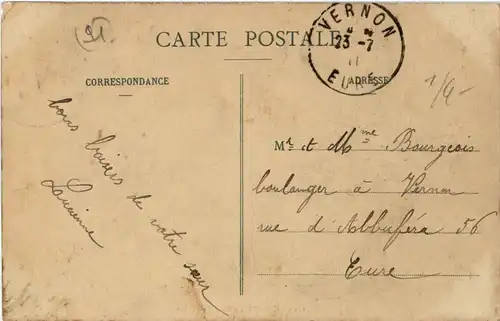 CARTE POSTALE
VERNON
23 -7
11
EURE
CORRESPONDANCE
ADRESSE
bons baisers de votre sœur
Lucienne
Mr et Mme Bourgeois
boulanger à Vernon
rue d'Albuféra 56
Eure